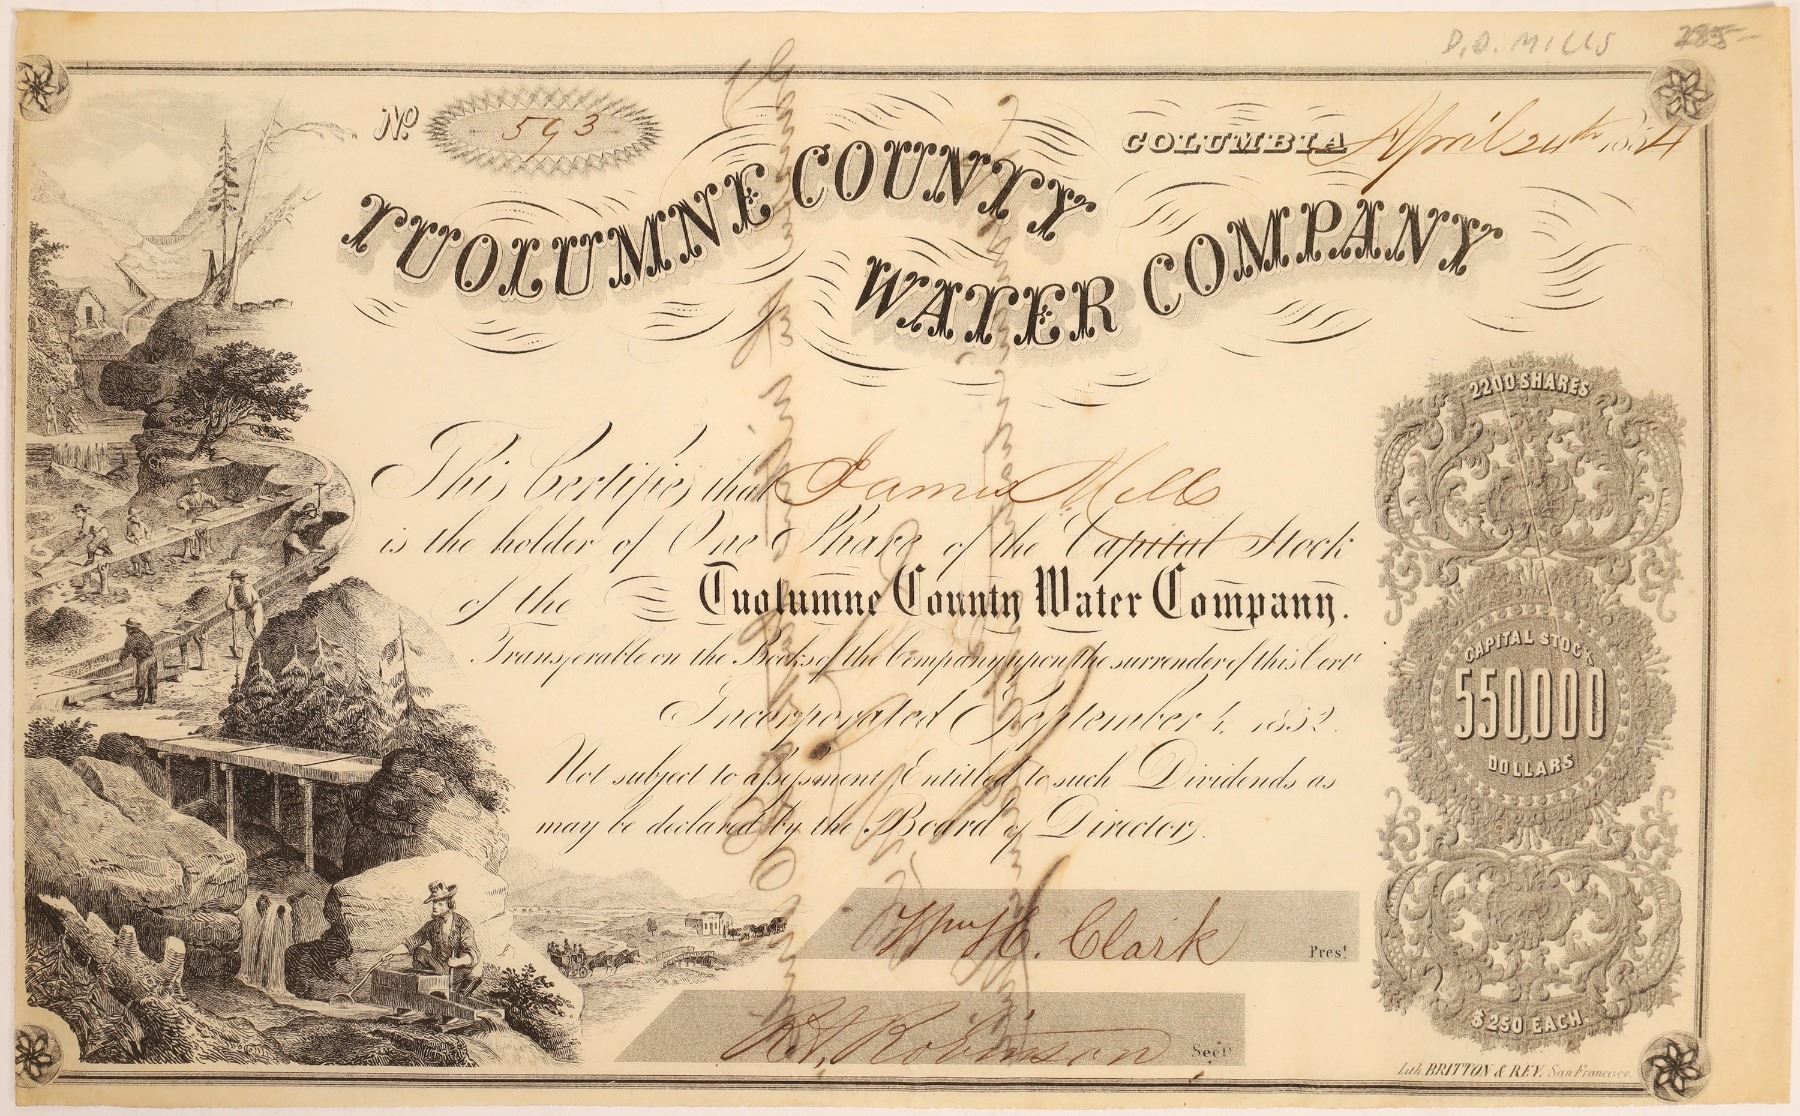 D.O. MILLS
No 593
COLUMBIA April 24th 1854
TUOLUMNE COUNTY
WATER COMPANY
2200 SHARES
This Certifies that James Mills
is the holder of One Share of the Capital Stock
of the Tuolumne County Water Company.
Transferable on the Books of the Company upon the surrender of this Cert
Incorporated September 4, 1852.
Not subject to assessment, Entitled to such Dividends as
may be declared by the Board of Directors.
CAPITAL STOCK
550,000
DOLLARS
Wm H. Clark Prest
Robinson Secy
$250 EACH
Lith. BRITTON & REY, San Francisco.